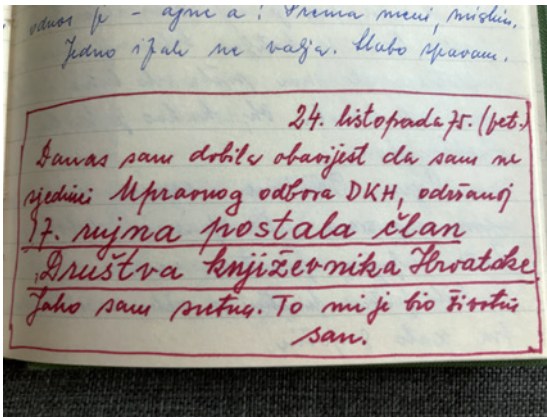 odnos je - ajme a! Prema meni, mislim.
Jedno ipak ne valja. Slabo spavam.
24. listopada 75. (pet.)
Danas sam dobila obavijest da sam na
sjednici Upravnog odbora DKH, održanoj
17. rujna postala član
Društva književnika Hrvatske.
Jako sam sretna. To mi je bio životni
san.